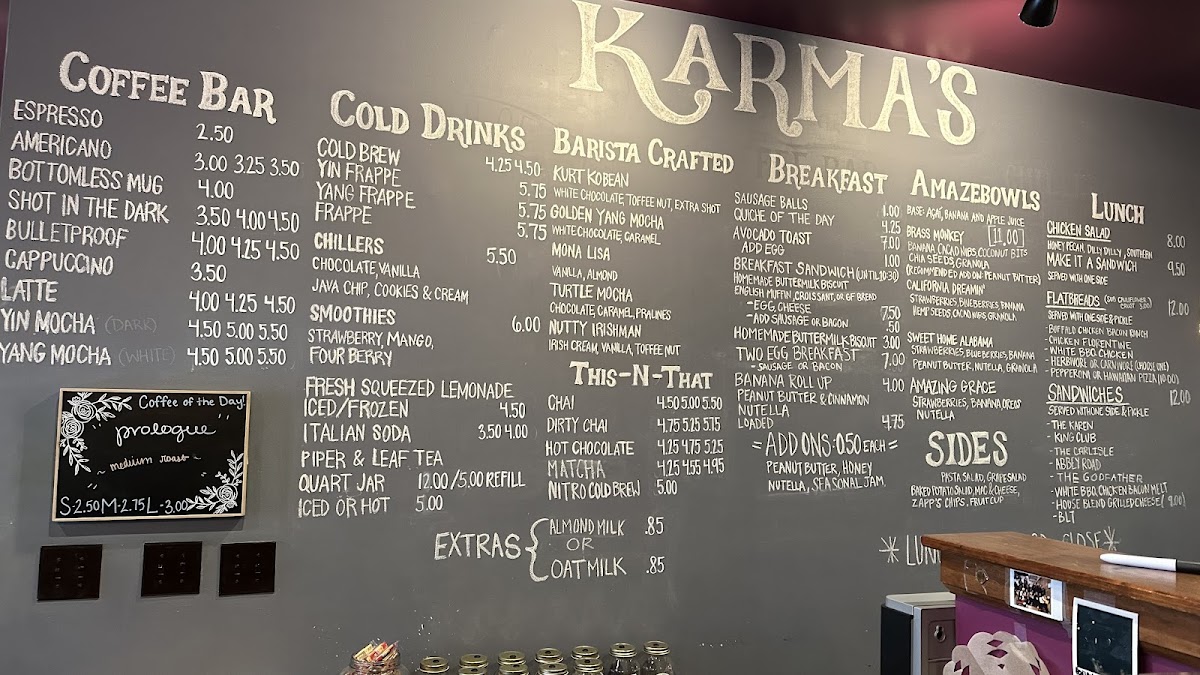 KARMA'S
COFFEE BAR
ESPRESSO 2.50
AMERICANO 3.00 3.25 3.50
BOTTOMLESS MUG 4.00
SHOT IN THE DARK 3.50 4.00 4.50
BULLETPROOF 4.00 4.25 4.50
CAPPUCCINO 3.50
LATTE 4.00 4.25 4.50
YIN MOCHA (DARK) 4.50 5.00 5.50
YANG MOCHA (WHITE) 4.50 5.00 5.50
Coffee of the Day!
prologue
~ medium roast ~
S-2.50 M-2.75 L-3.00
COLD DRINKS
COLD BREW 4.25 4.50
YIN FRAPPE 5.75
YANG FRAPPE 5.75
FRAPPE 5.75
CHILLERS 5.50
CHOCOLATE, VANILLA
JAVA CHIP, COOKIES & CREAM
SMOOTHIES 6.00
STRAWBERRY, MANGO,
FOUR BERRY
FRESH SQUEEZED LEMONADE
ICED/FROZEN 4.50
ITALIAN SODA 3.50 4.00
PIPER & LEAF TEA
QUART JAR 12.00/5.00 REFILL
ICED OR HOT 5.00
BARISTA CRAFTED
KURT KOBEAN
WHITE CHOCOLATE, TOFFEE NUT, EXTRA SHOT
GOLDEN YANG MOCHA
WHITE CHOCOLATE, CARAMEL
MONA LISA
VANILLA, ALMOND
TURTLE MOCHA
CHOCOLATE, CARAMEL, PRALINES
NUTTY IRISHMAN
IRISH CREAM, VANILLA, TOFFEE NUT
THIS-N-THAT
CHAI 4.50 5.00 5.50
DIRTY CHAI 4.75 5.25 5.75
HOT CHOCOLATE 4.25 4.75 5.25
MATCHA 4.25 4.55 4.95
NITRO COLD BREW 5.00
EXTRAS { ALMOND MILK .85
OR
OATMILK .85
BREAKFAST
SAUSAGE BALLS 1.00
QUICHE OF THE DAY 4.25
AVOCADO TOAST 7.00
ADD EGG 1.00
BREAKFAST SANDWICH (UNTIL 10:30)
HOMEMADE BUTTERMILK BISCUIT
ENGLISH MUFFIN, CROISSANT, OR GF BREAD
-EGG, CHEESE 7.50
-ADD SAUSAGE OR BACON .50
HOMEMADE BUTTERMILK BISCUIT 3.00
TWO EGG BREAKFAST 7.00
-SAUSAGE OR BACON
BANANA ROLL UP 4.00
PEANUT BUTTER & CINNAMON
NUTELLA
LOADED 4.75
=ADD ONS: 0.50 EACH=
PEANUT BUTTER, HONEY
NUTELLA, SEASONAL JAM
AMAZEBOWLS
BASE: AÇAÍ, BANANA AND APPLE JUICE
BRASS MONKEY [11.00]
BANANA CACAO NIBS, COCONUT BITS
CHIA SEEDS, GRANOLA
(RECOMMENDED ADD ON: PEANUT BUTTER)
CALIFORNIA DREAMIN'
STRAWBERRIES, BLUEBERRIES, BANANA
HEMP SEEDS CACAO NIBS, GRANOLA
SWEET HOME ALABAMA
STRAWBERRIES, BLUEBERRIES, BANANA
PEANUT BUTTER, NUTELLA, GRANOLA
AMAZING GRACE
STRAWBERRIES, BANANA, OREOS
NUTELLA
SIDES
PASTA SALAD, GRAPE SALAD
BAKED POTATO SALAD, MAC & CHEESE,
ZAPP'S CHIPS, FRUIT CUP
LUNCH
CHICKEN SALAD 8.00
HONEY PECAN, DILLY DILLY, SOUTHERN
MAKE IT A SANDWICH 9.50
SERVED WITH ONE SIDE
FLATBREADS (SUB CAULIFLOWER CRUST 3.00) 12.00
SERVED WITH ONE SIDE & PICKLE
-BUFFALO CHICKEN BACON RANCH
-CHICKEN FLORENTINE
-WHITE BBQ CHICKEN
-HERBIVORE OR CARNIVORE (CHOOSE ONE)
-PEPPERONI OR HAWAIIAN PIZZA (10.00)
SANDWICHES 12.00
SERVED WITH ONE SIDE & PICKLE
-THE KAREN
-KING CLUB
-THE CARLISLE
-ABBEY ROAD
-THE GODFATHER
-WHITE BBQ CHICKEN BACON MELT
-HOUSE BLEND GRILLED CHEESE (9.00)
-BLT
CLOSE